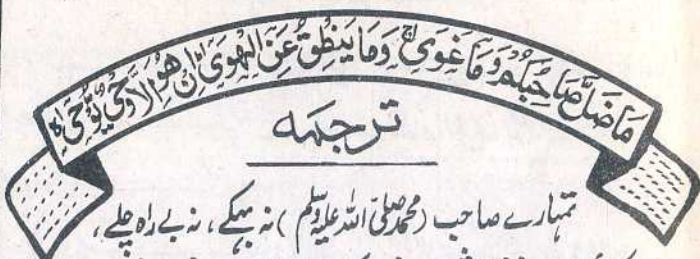 مَا ضَلَّ صَاحِبُكُمْ وَمَا غَوَىٰ ۚ وَمَا يَنْطِقُ عَنِ الْهَوَىٰ اِنْ هُوَ اِلَّا وَحْيٌ يُّوْحٰى
ترجمہ
تمہارے صاحب (محمد صلی اللہ علیہ وسلم) نہ بہکے، نہ بے راہ چلے،